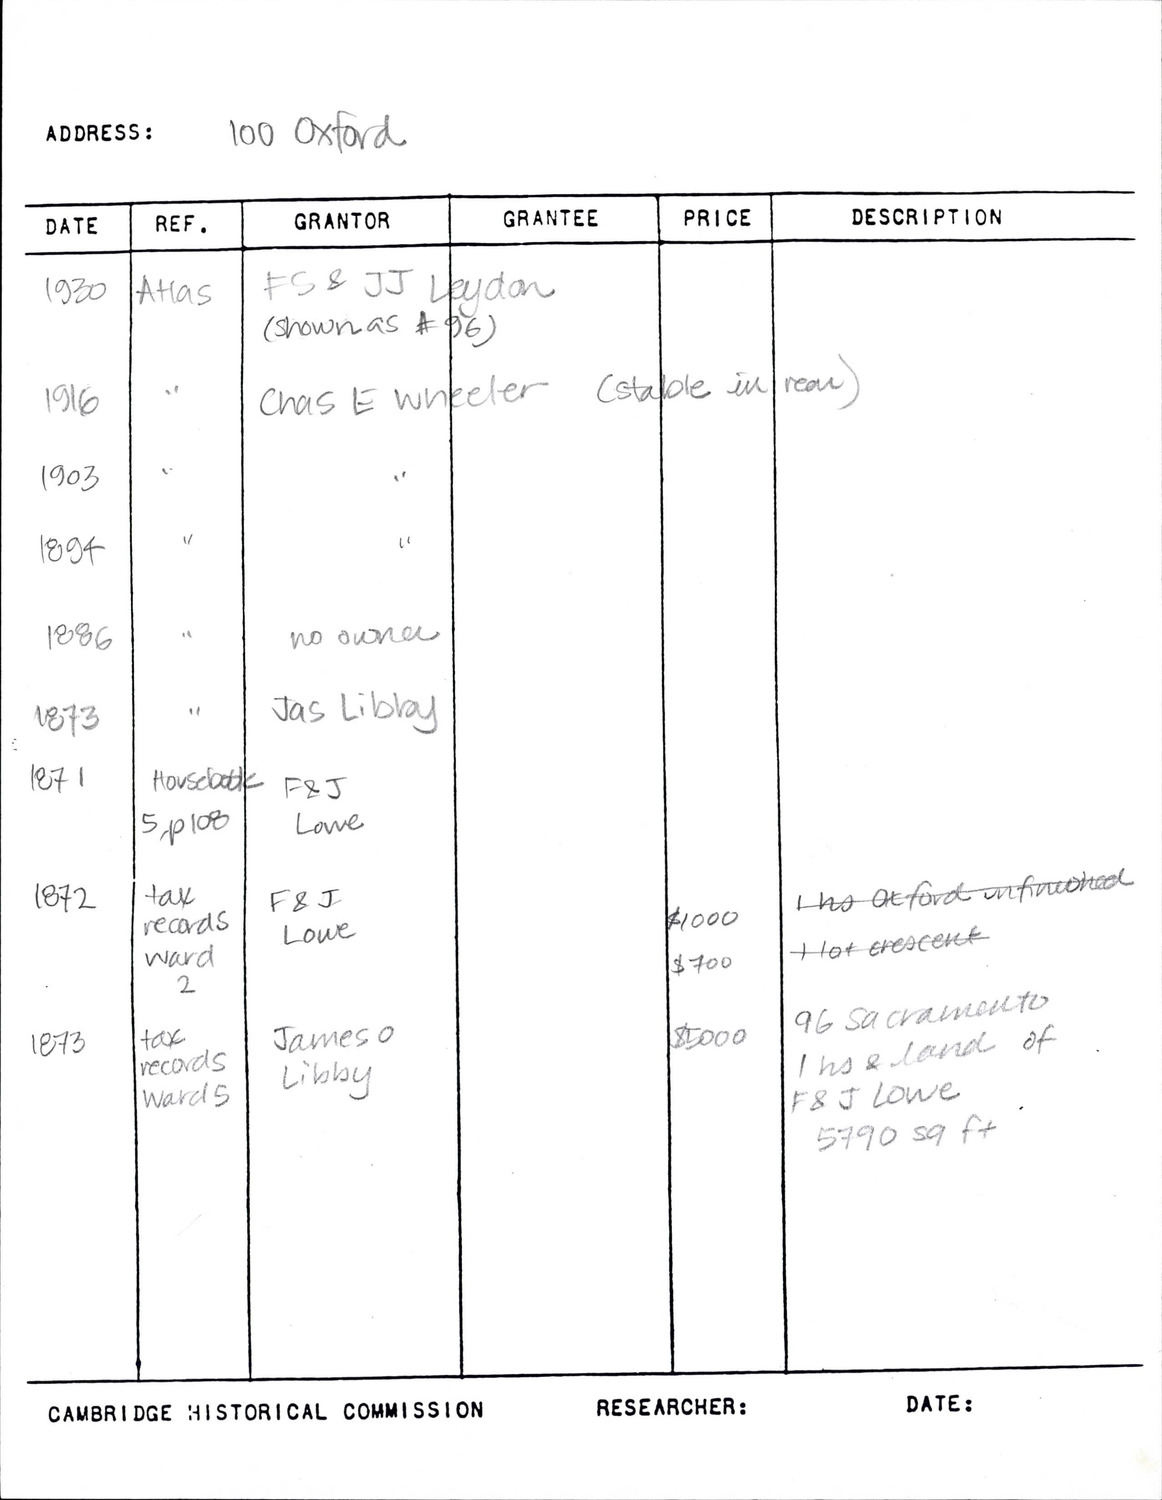 ADDRESS: 100 Oxford
DATE REF. GRANTOR GRANTEE PRICE DESCRIPTION
1930 Atlas FS & JJ Leydon
(shown as # 96)
1916 " Chas E Wheeler (stable in rear)
1903 " "
1894 " "
1886 " no owner
1873 " Jas Libbay
1871 Housebook F&J
5, p108 Lowe
1872 tax F & J 1 hs Oxford unfinished
records Lowe $1000 1 lot crescent
ward $700
2
1873 tax James O $5000 96 Sacramento
records Libby 1 hs & land of
Ward 5 F& J Lowe
5790 sq ft
CAMBRIDGE HISTORICAL COMMISSION RESEARCHER: DATE: